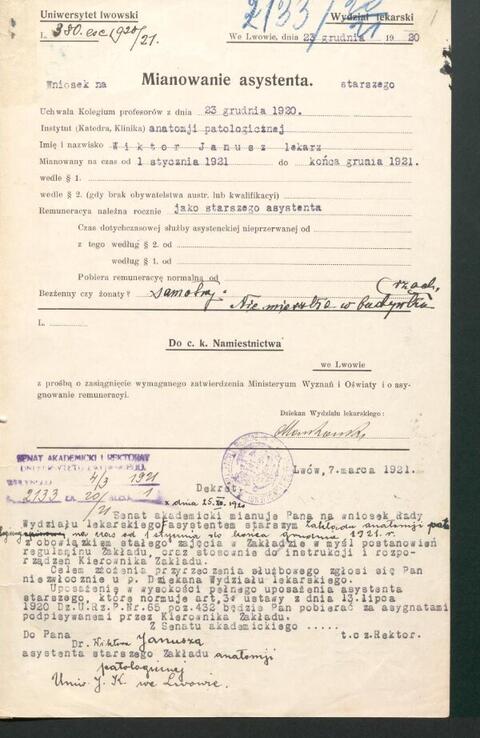 Uniwersytet lwowski
Wydział lekarski
L. 380. esc 1920/21.
2133 20/21
We Lwowie, dnia 23 grudnia 1920
Wniosek na Mianowanie asystenta. starszego
Uchwała Kolegium profesorów z dnia 23 grudnia 1920.
Instytut (Katedra, Klinika) anatomji patologicznej
Imię i nazwisko Wiktor Janusz lekarz
Mianowany na czas od 1 stycznia 1921 do końca grudnia 1921.
wedle § 1.
wedle § 2. (gdy brak obywatelstwa austr. lub kwalifikacyi)
Remuneracya należna rocznie jako starszego asystenta
Czas dotychczasowej służby asystenckiej nieprzerwanej od
z tego według § 2. od
według § 1. od
Pobiera remuneracyę normalną od
Bezżenny czy żonaty? samotny.
Nie mieszka w budynku rząd.
L.
Do c. k. Namiestnictwa
we Lwowie
z prośbą o zasiągnięcie wymaganego zatwierdzenia Ministeryum Wyznań i Oświaty i o asy-
gnowanie remuneracyi.
Dziekan Wydziału lekarskiego:
SENAT AKADEMICKI I REKTORAT
UNIWERSYTETU LWOWSKIEGO.
4/3 1921
L. 2133 20/21
Lwów, 7. marca 1921.
Dekret.
z dnia 25.XII.1920
Senat akademicki mianuje Pana na wniosek Rady
Wydziału lekarskiego asystentem starszym Zakładu anatomji pato-
logicznej na czas od 1 stycznia do końca grudnia 1921. r.
z obowiązkiem stałego zajęcia w Zakładzie w myśl postanowień
regulaminu Zakładu, oraz stosownie do instrukcji i rozpo-
rządzeń Kierownika Zakładu.
Celem złożenia przyrzeczenia służbowego zgłosi się Pan
niezwłocznie u p. Dziekana Wydziału lekarskiego.
Uposażenie w wysokości pełnego uposażenia asystenta
starszego, które normuje art. 3. ustawy z dnia 13. lipca
1920 Dz.U.Rz.P.Nr.65 poz.432 będzie Pan pobierać za asygnatami
podpisywanemi przez Kierownika Zakładu.
Z Senatu akademickiego .....
Do Pana t.cz.Rektor.
Dr. Wiktora Janusza
asystenta starszego Zakładu anatomji
patologicznej
Uniw. J. K. we Lwowie.